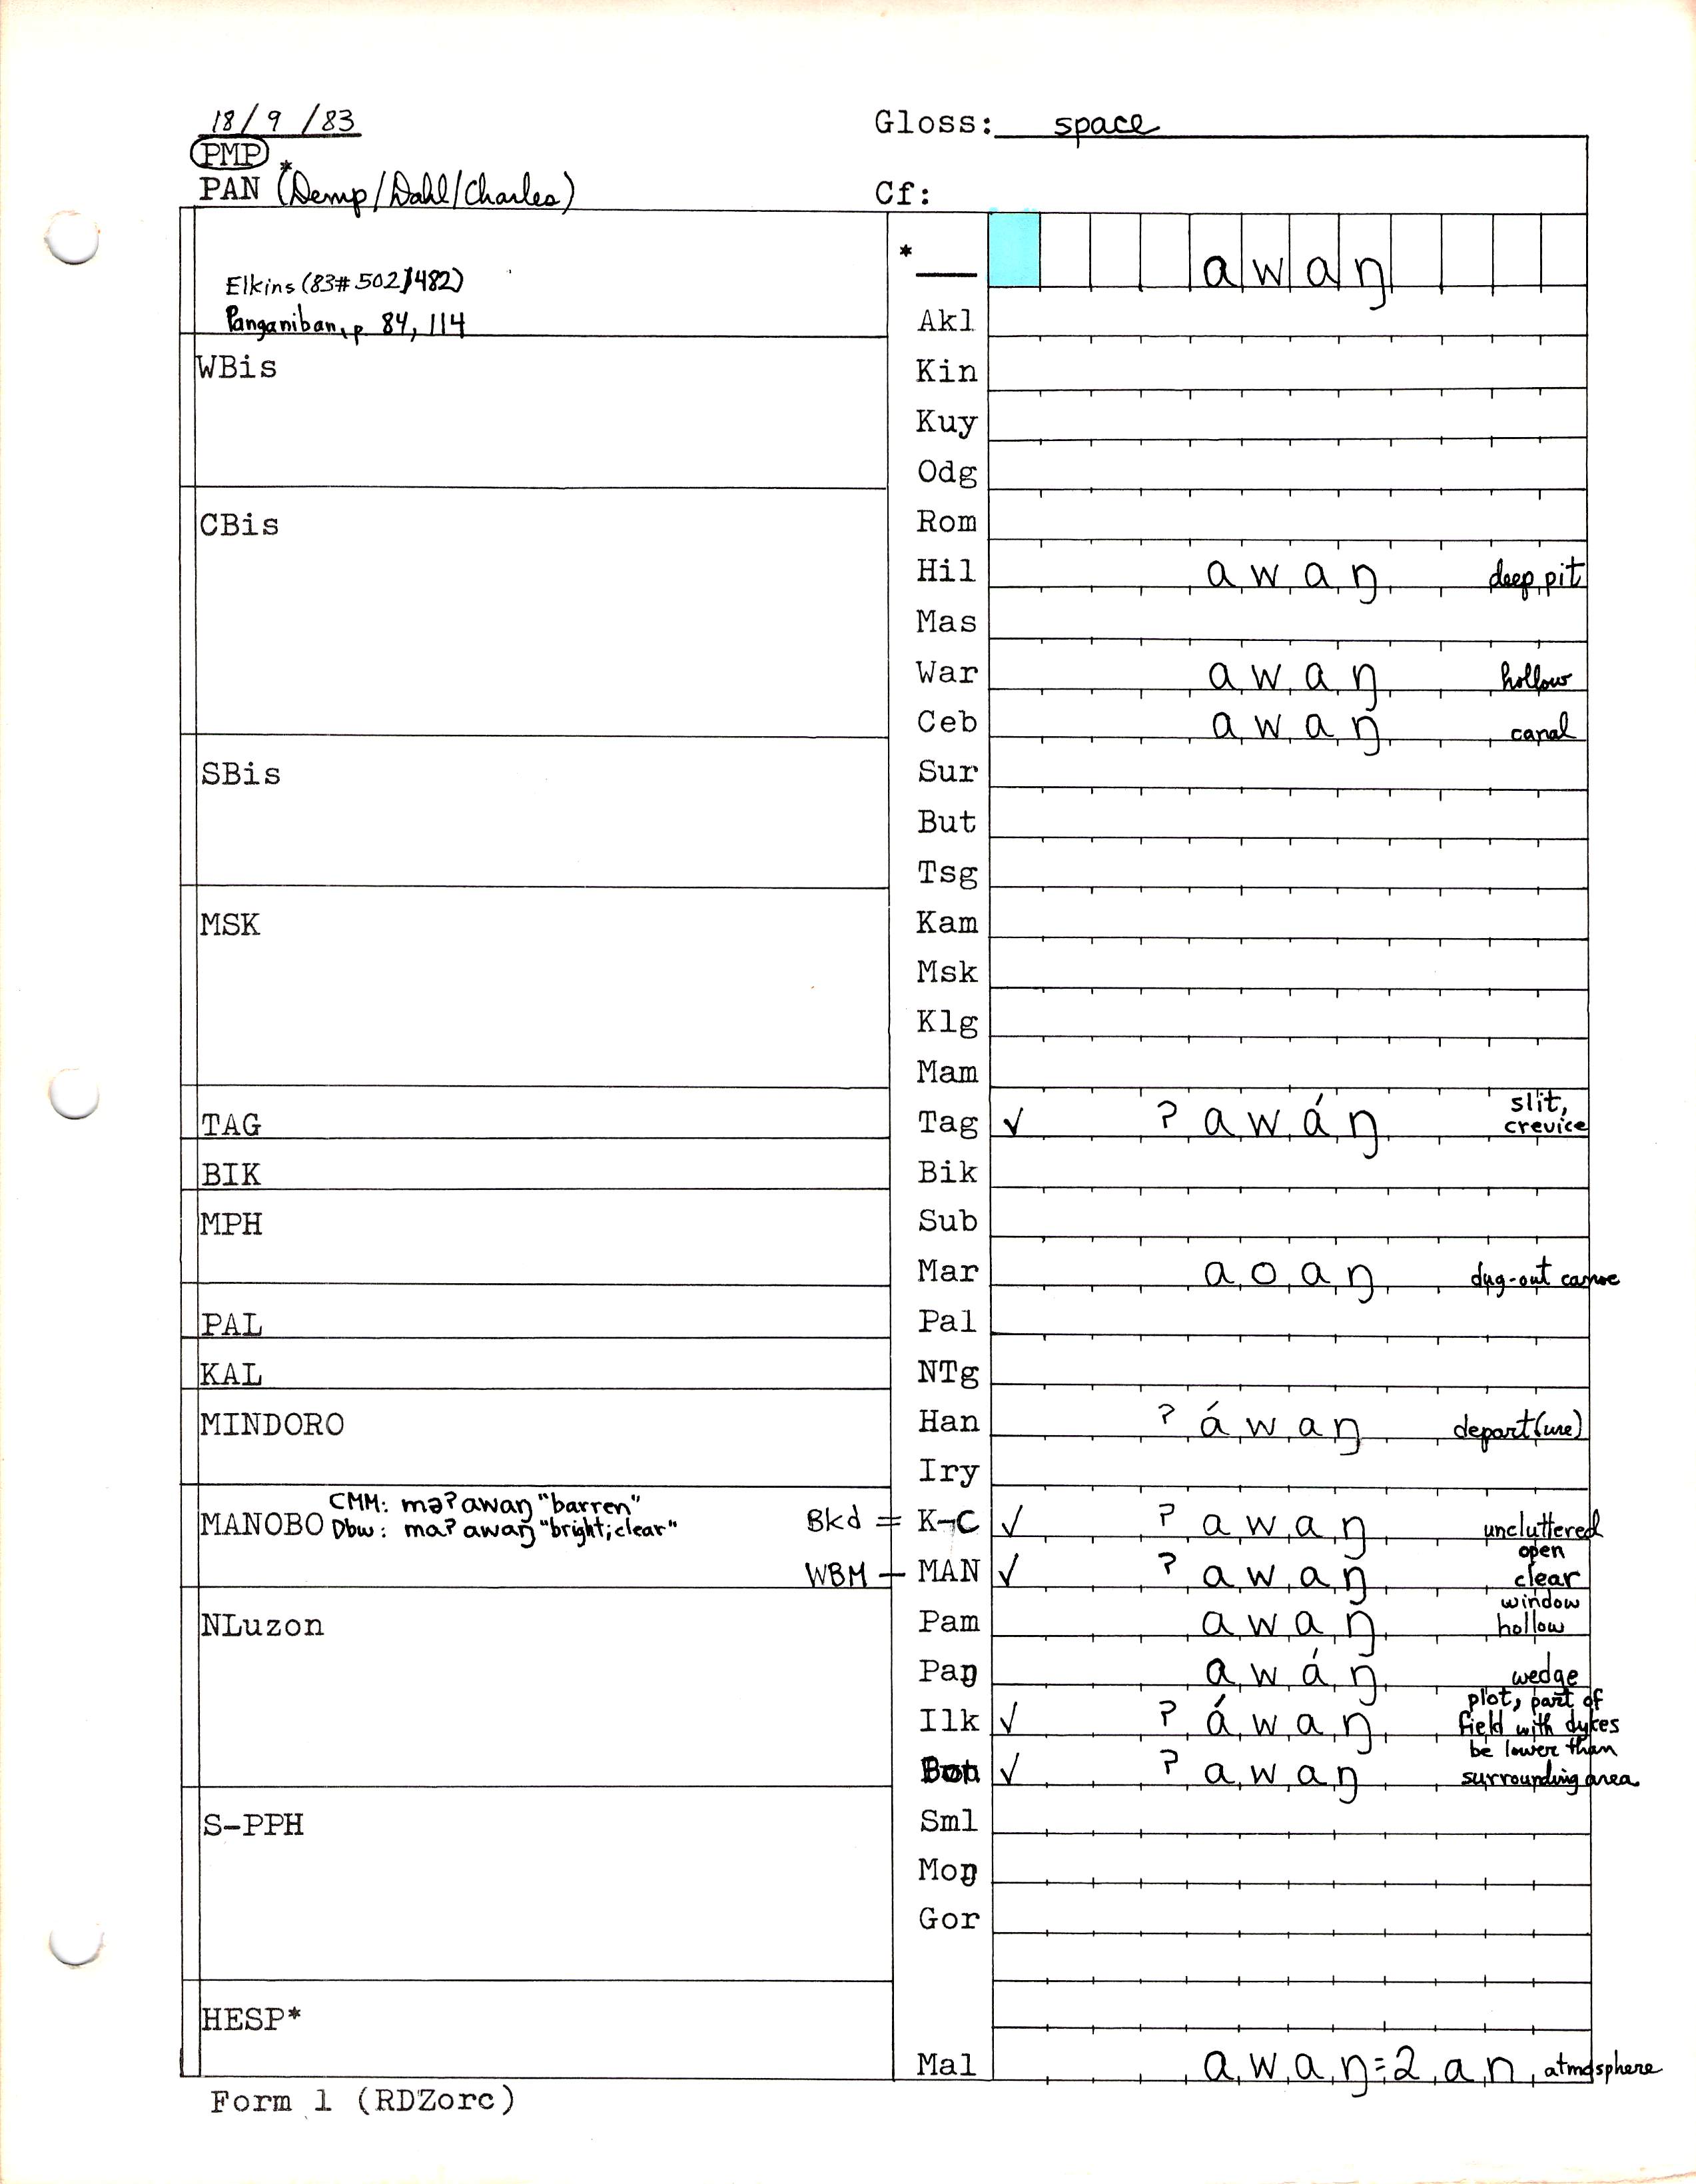 18/9/83 Gloss: space
PMP
PAN (*Demp/Dahl/Charles) Cf:
* awaŋ
Elkins (83#502/482)
Panganiban, p 84, 114
Akl
WBis
Kin
Kuy
Odg
CBis
Rom
Hil awaŋ deep pit
Mas
War awaŋ hollow
Ceb awaŋ canal
SBis
Sur
But
Tsg
MSK
Kam
Msk
Klg
Mam
TAG
Tag ✓ ʔawáŋ slit, crevice
BIK
Bik
MPH
Sub
Mar aoaŋ dug-out canoe
PAL
Pal
KAL
NTg
MINDORO
Han ʔáwaŋ depart(ure)
Iry
MANOBO CMM: məʔawaŋ "barren"
Dbw: maʔawaŋ "bright; clear"
Bkd = K-C ✓ ʔawaŋ uncluttered
WBM - MAN ✓ ʔawaŋ open clear
NLuzon
Pam awaŋ window hollow
Paŋ awáŋ wedge
Ilk ✓ ʔáwaŋ plot, part of field with dykes
✓ ʔawaŋ be lower than surrounding area
S-PPH
Sml
Moŋ
Gor
HESP*
Mal awaŋ=2an atmosphere
Form 1 (RDZorc)